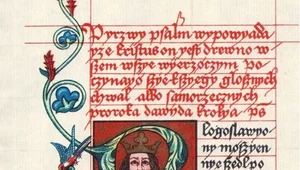 Pyrzwy psalm wypowyada
yze kristus on yest drewno w
szem wszye wyerzoczym po
czynayø szye kszyęgy glosnych
chwal albo samorzecznych
proroka dawyda krolya ps
logoslawyony
møszyen
nye szedl po